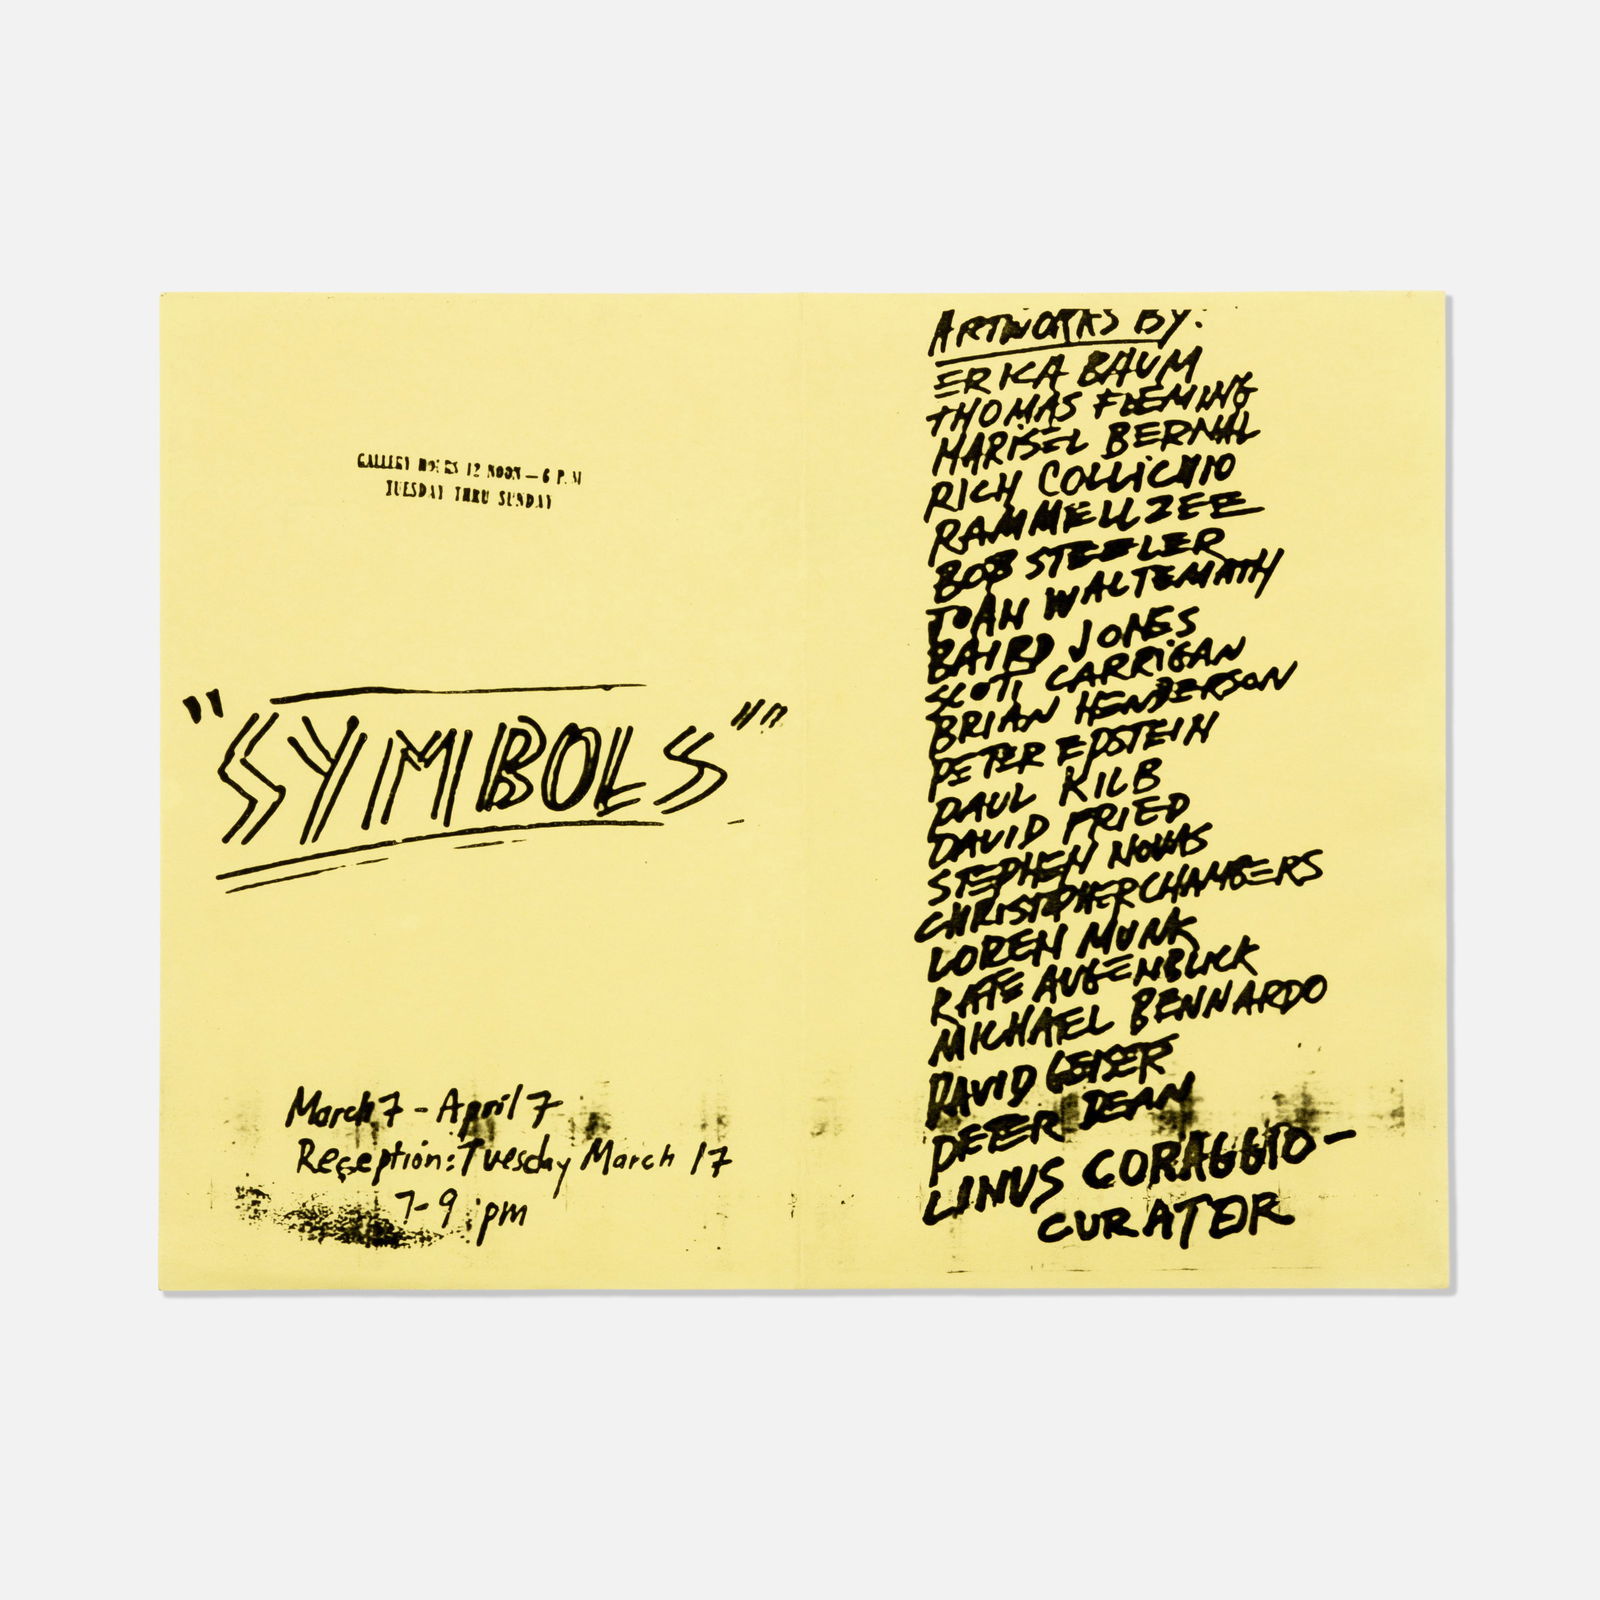 GALLERY HOURS 12 NOON — 6 P.M
TUESDAY THRU SUNDAY
"SYMBOLS"
March 7 - April 7
Reception: Tuesday March 17
7-9 pm
ARTWORKS BY:
ERICA BAUM
THOMAS FLEMING
MARISEL BERNAL
RICH COLLICHIO
RAMMELLZEE
BOB STEELER
JOAN WALTEMATH
BAIRD JONES
SCOTT CARRIGAN
BRIAN HENDERSON
PETER EPSTEIN
PAUL KILB
DAVID FRIED
STEPHEN NOVAS
CHRISTOPHER CHAMBERS
LOREN MUNK
KATE AUGENBLICK
MICHAEL BENNARDO
DAVID GEISER
PETER DEAN
LINUS CORAGGIO-
CURATOR